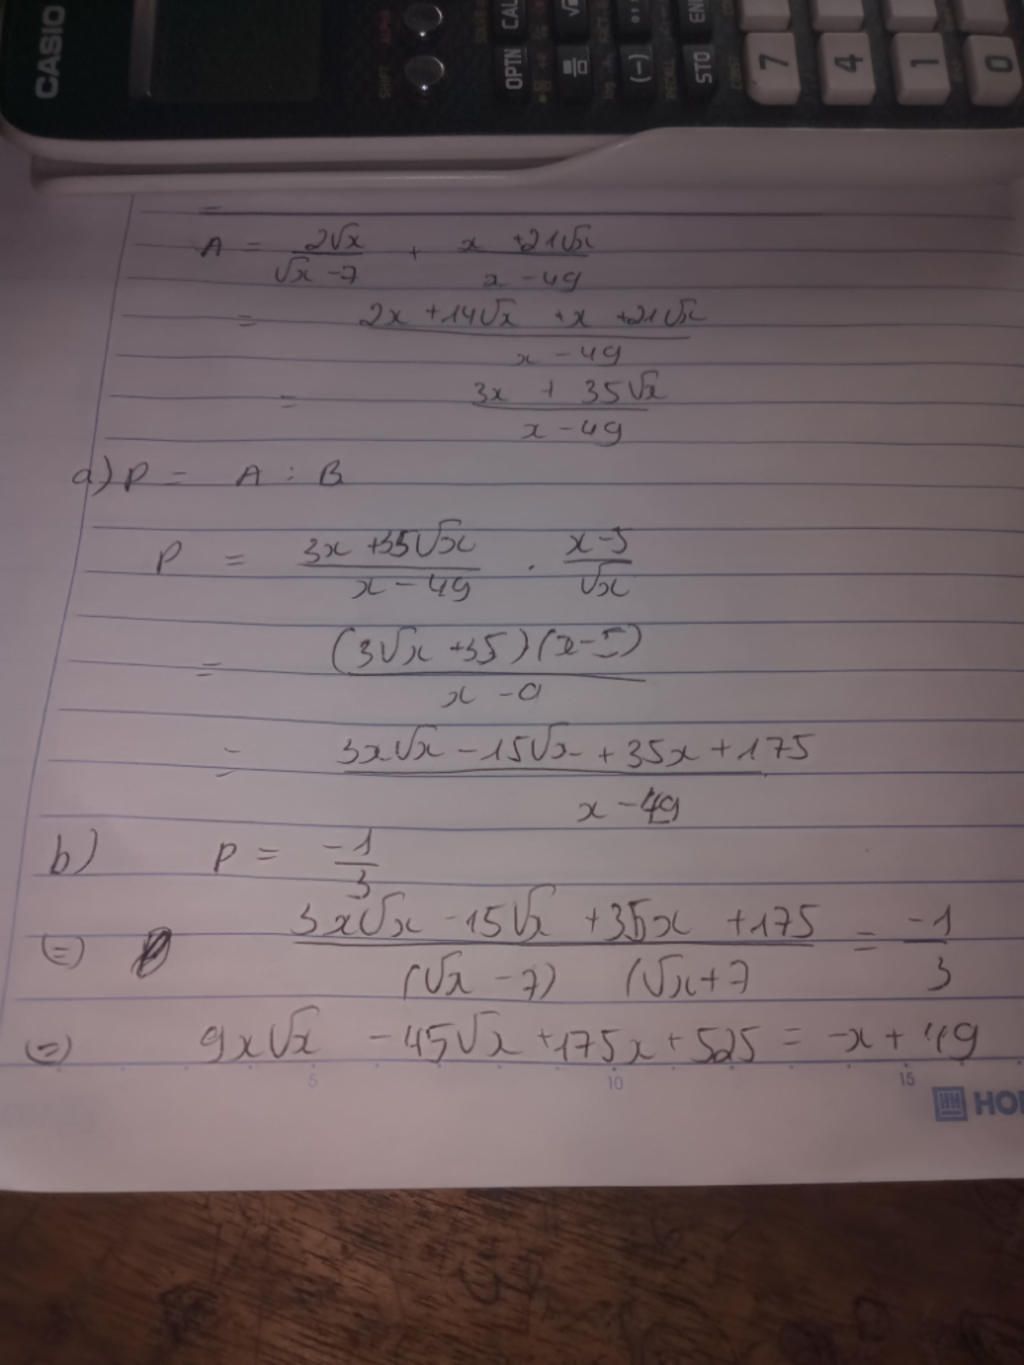 CASIO
OPTN CAL
(-)
STO EN
7 4 1 0
=
A = 2√x / √x - 7 + x + 21√x / x - 49
= 2x + 14√x + x + 21√x / x - 49
= 3x + 35√x / x - 49
a) P = A : B
P = 3x + 35√x / x - 49 . x - 5 / √x
= (3√x + 35)(x - 5) / x - 9
= 3x√x - 15√x + 35x + 175 / x - 49
b) P = -1 / 3
(=) 3x√x - 15√x + 35x + 175 / (√x - 7) (√x + 7 = -1 / 3
(=) 9x√x - 45√x + 175x + 525 = -x + 49
5 10 15
HO